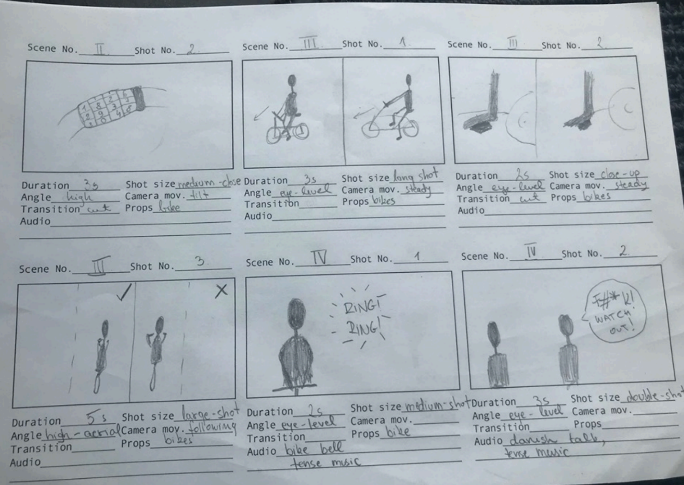 Scene No. II Shot No. 2
Duration 3s Shot size medium-close
Angle high Camera mov. tilt
Transition cut Props bike
Audio
Scene No. III Shot No. 1
Duration 3s Shot size long shot
Angle eye-level Camera mov. steady
Transition Props bikes
Audio
Scene No. III Shot No. 2
Duration 2s Shot size close-up
Angle eye-level Camera mov. steady
Transition cut Props bikes
Audio
Scene No. III Shot No. 3
Duration 5s Shot size large-shot
Angle high-aerial Camera mov. following
Transition Props bikes
Audio
Scene No. IV Shot No. 1
RING!
RING!
Duration 2s Shot size medium-shot
Angle eye-level Camera mov.
Transition Props bike
Audio bike bell
tense music
Scene No. IV Shot No. 2
WATCH
OUT!
Duration 3s Shot size double-shot
Angle eye-level Camera mov.
Transition Props
Audio danish talk,
tense music